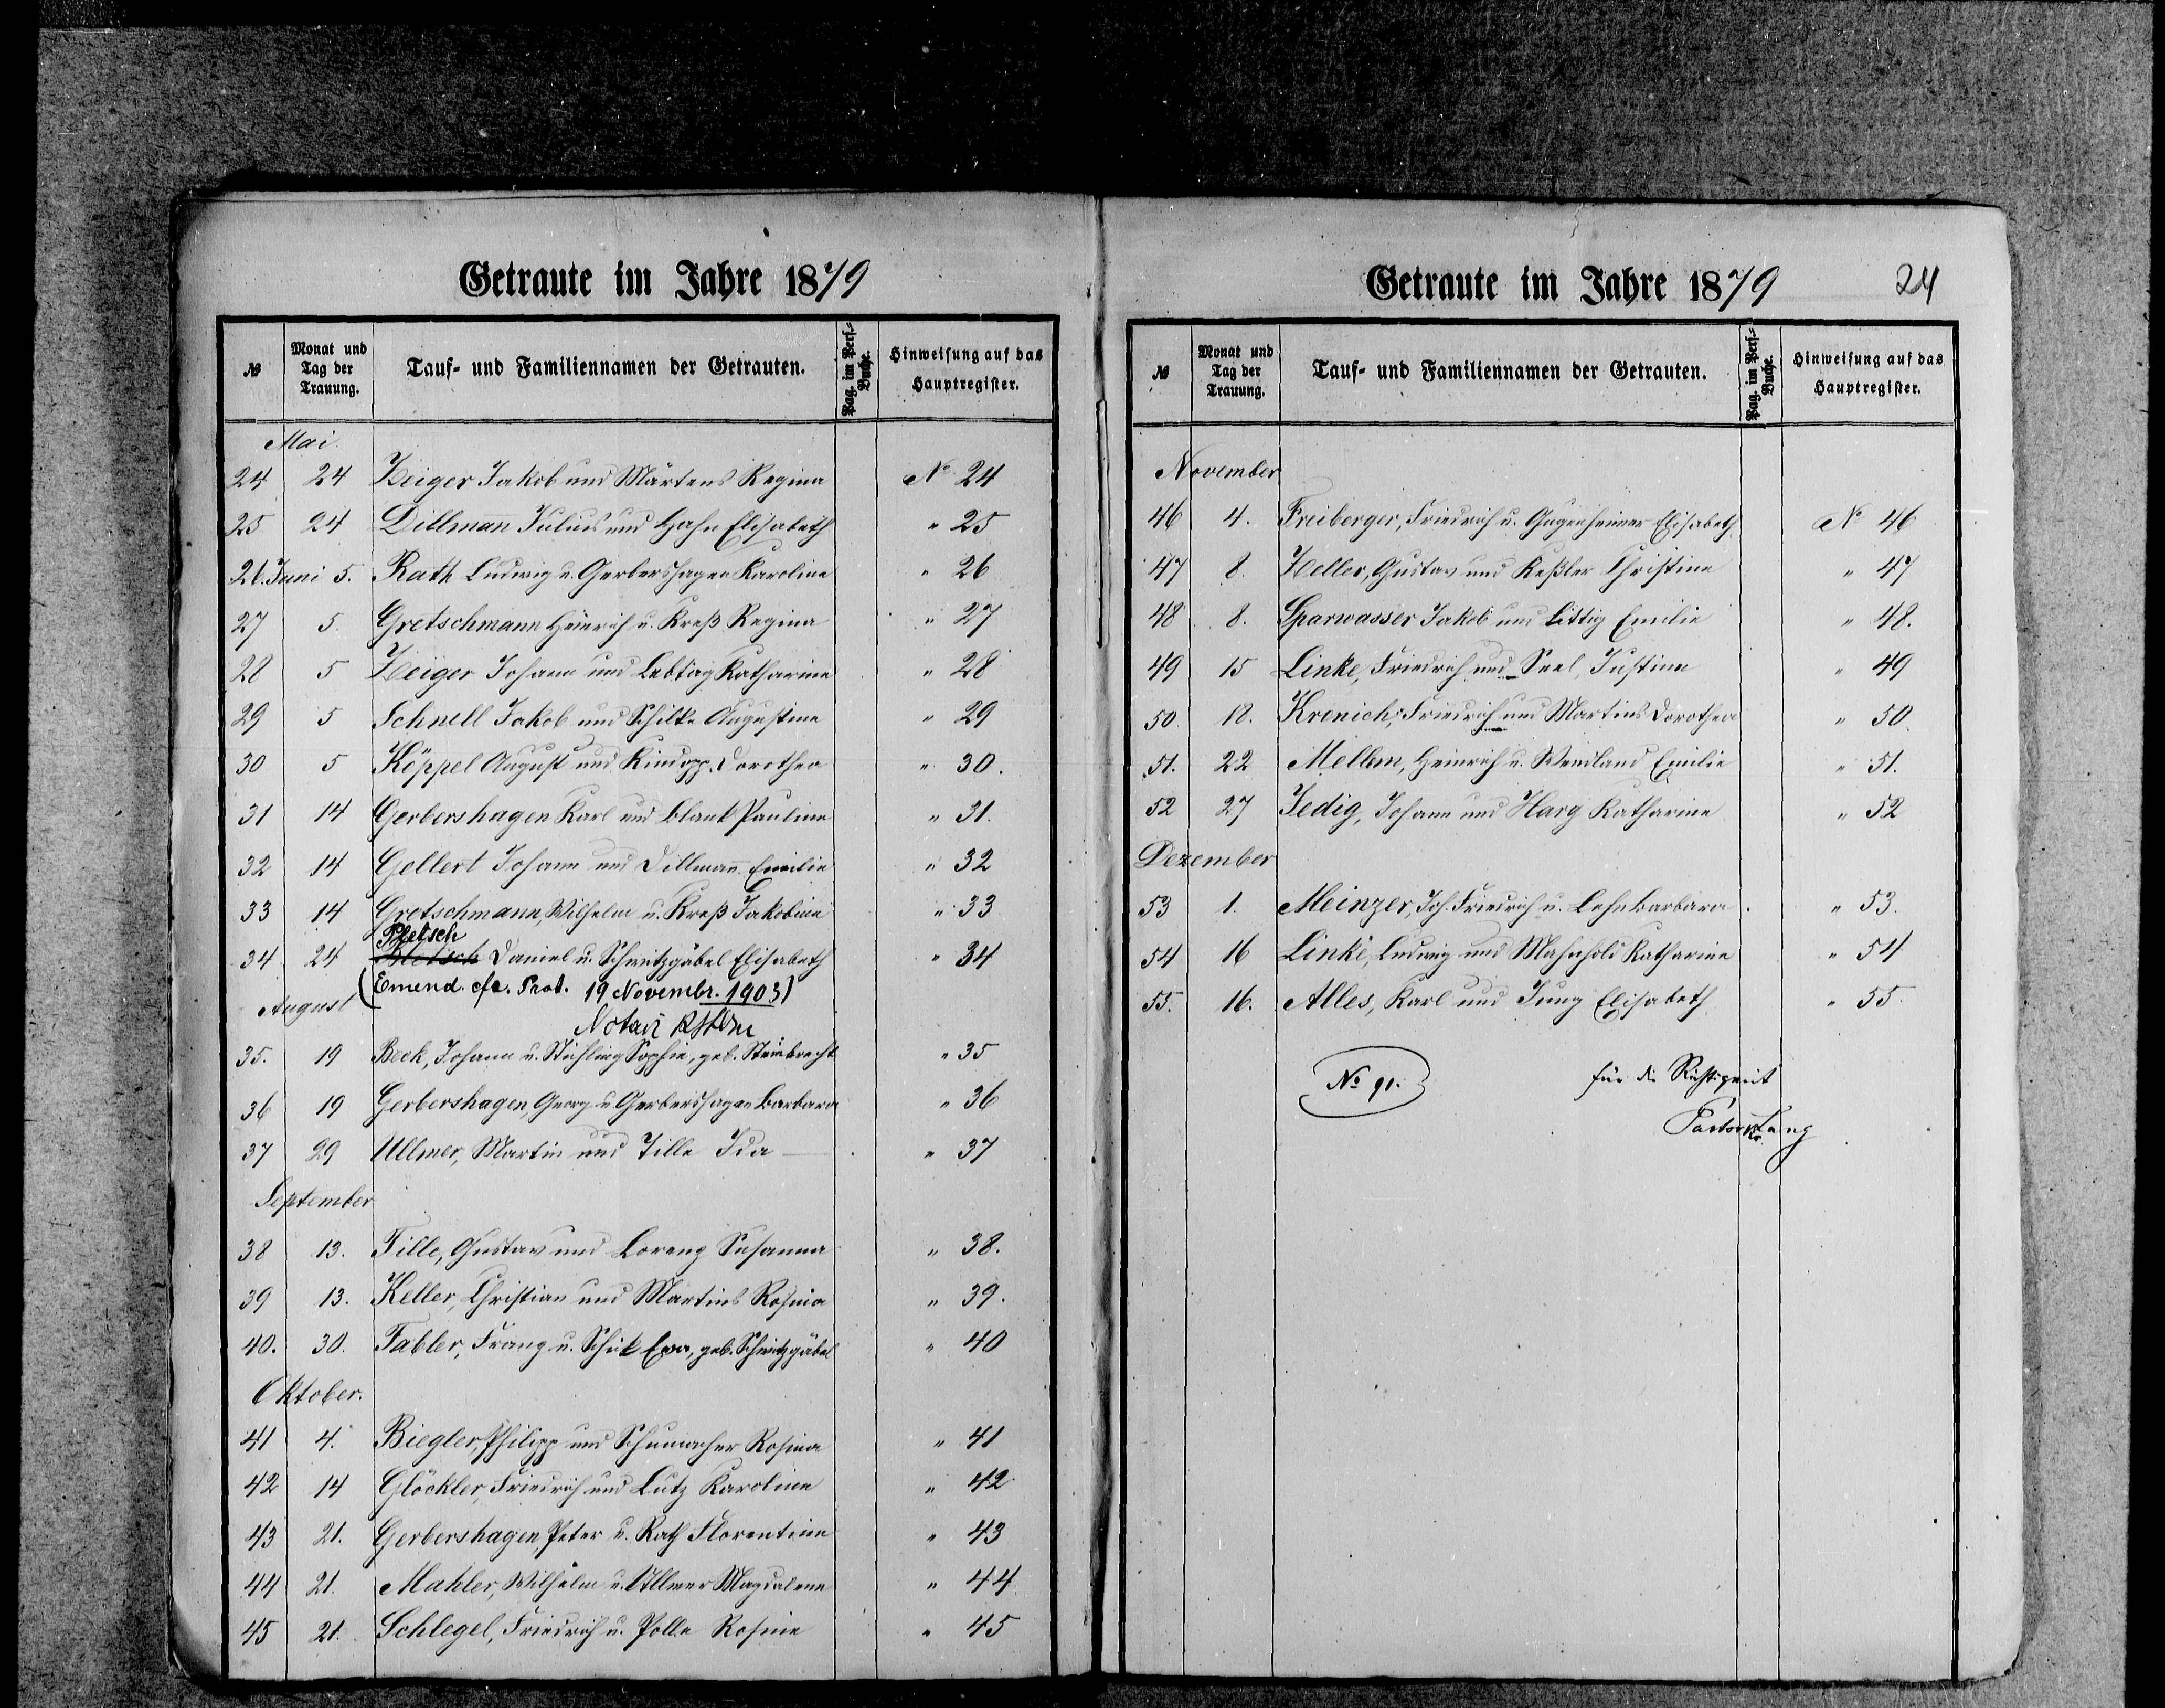 Getraute im Jahre 1879
№ Monat und Tag der Trauung. Tauf- und Familiennamen der Getrauten. Pag. im Pers.-Buche. Hinweisung auf das Hauptregister.
Mai
24 24 Zeiger Jakob und Märtens Regina № 24
25 24 Dillman Julius und Hahn Elisabeth " 25
26. Juni 5. Rath Ludwig u. Gerbershagen Karoline " 26
27 5. Gretschmann Heinrich u. Kreß Regina " 27
28 5 Zeiger Johann und Lebtag Katharine " 28
29 5 Schnell Jakob und Schilke Augustine " 29
30 5 Köppel August und Kindopp Dorothea " 30.
31 14 Gerbershagen Karl und Blank Pauline " 31.
32 14 Gellert Johann und Dillmann Emilie " 32
33 14 Gretschmann, Wilhelm u. Kreß Jakobine " 33
Pletsch
34 24 Daniel u. Schmitzgäbel Elisabeth " 34
(Emend. cfr. Prot. 19 Novembr. 1903)
August
Notair
35. 19 Beck, Johann u. Stichling Sophie, geb. Steinbrecht " 35
36 19 Gerbershagen, Georg u. Gerbershagen Barbara " 36
37 29 Ullmer, Martin und Tille Ida " 37
September
38 13. Tille, Gustav und Lorenz Susanna " 38.
39 13. Keller, Christian und Martins Rosina " 39.
40. 30. Fabler, Franz u. Schick Eva, geb. Schmitzgäbel " 40
Oktober.
41 4. Biegler, Philipp und Schumacher Rosina " 41
42 14 Glöckler, Friedrich und Lutz Karoline " 42
43 21. Gerbershagen, Peter u. Rath Florentine " 43
44 21. Mahler, Wilhelm u. Ullmer Magdalena " 44
45 21. Schlegel, Friedrich u. Polle Rosine " 45
Getraute im Jahre 1879 24
№ Monat und Tag der Trauung. Tauf- und Familiennamen der Getrauten. Pag. im Pers.-Buche. Hinweisung auf das Hauptregister.
November
46 4. Freiberger, Friedrich u. Gugenheimer Elisabeth № 46
47 8. Heller, Gustav und Keßler Christine " 47
48 8. Sparwasser Jakob und Littig Emilie " 48.
49 15 Linke, Friedrich und Seel, Justine " 49
50. 18. Krenich, Friedrich und Martins Dorothea " 50.
51. 22 Mellem, Heinrich u. Wendland Emilie " 51.
52 27 Jedig, Johann und Harg Katharine " 52
Dezember
53 1. Meinzer, Joh. Friedrich u. Lehn Barbara " 53.
54 16 Linke, Ludwig und Mahnhold Katharine " 54
55. 16. Alles, Karl und Jung Elisabeth " 55.
№ 91. für die Richtigkeit
Pastor Lang